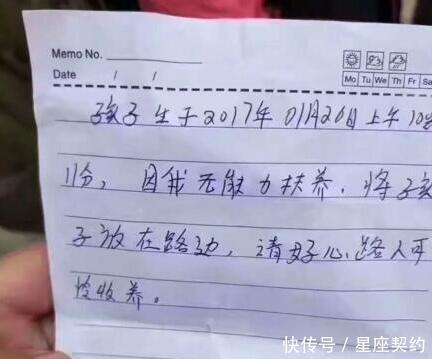 Memo No.
Date / /
Mo Tu We Th Fr Sa
孩子生于2017年01月26日上午10
11分，因我无能力扶养．将孩
子放在路边，请好心路人可
怜收养。
快传号／星座契约